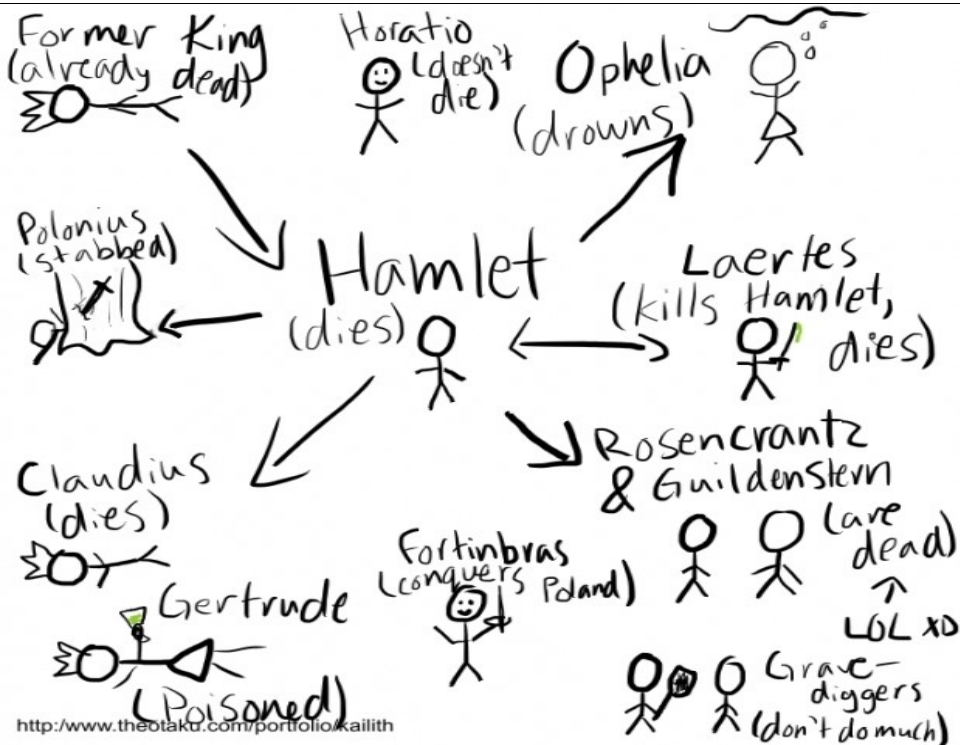 Former King
(already dead)
Horatio
(doesn't
die)
Ophelia
(drowns)
Polonius
(stabbed)
Hamlet
(dies)
Laertes
(kills Hamlet,
dies)
Claudius
(dies)
Rosencrantz
& Guildenstern
(are
dead)
LOL XD
Fortinbras
(conquers Poland)
Gertrude
(Poisoned)
Grave-
diggers
(don't do much)
http://www.theotaku.com/portfolio/kailith